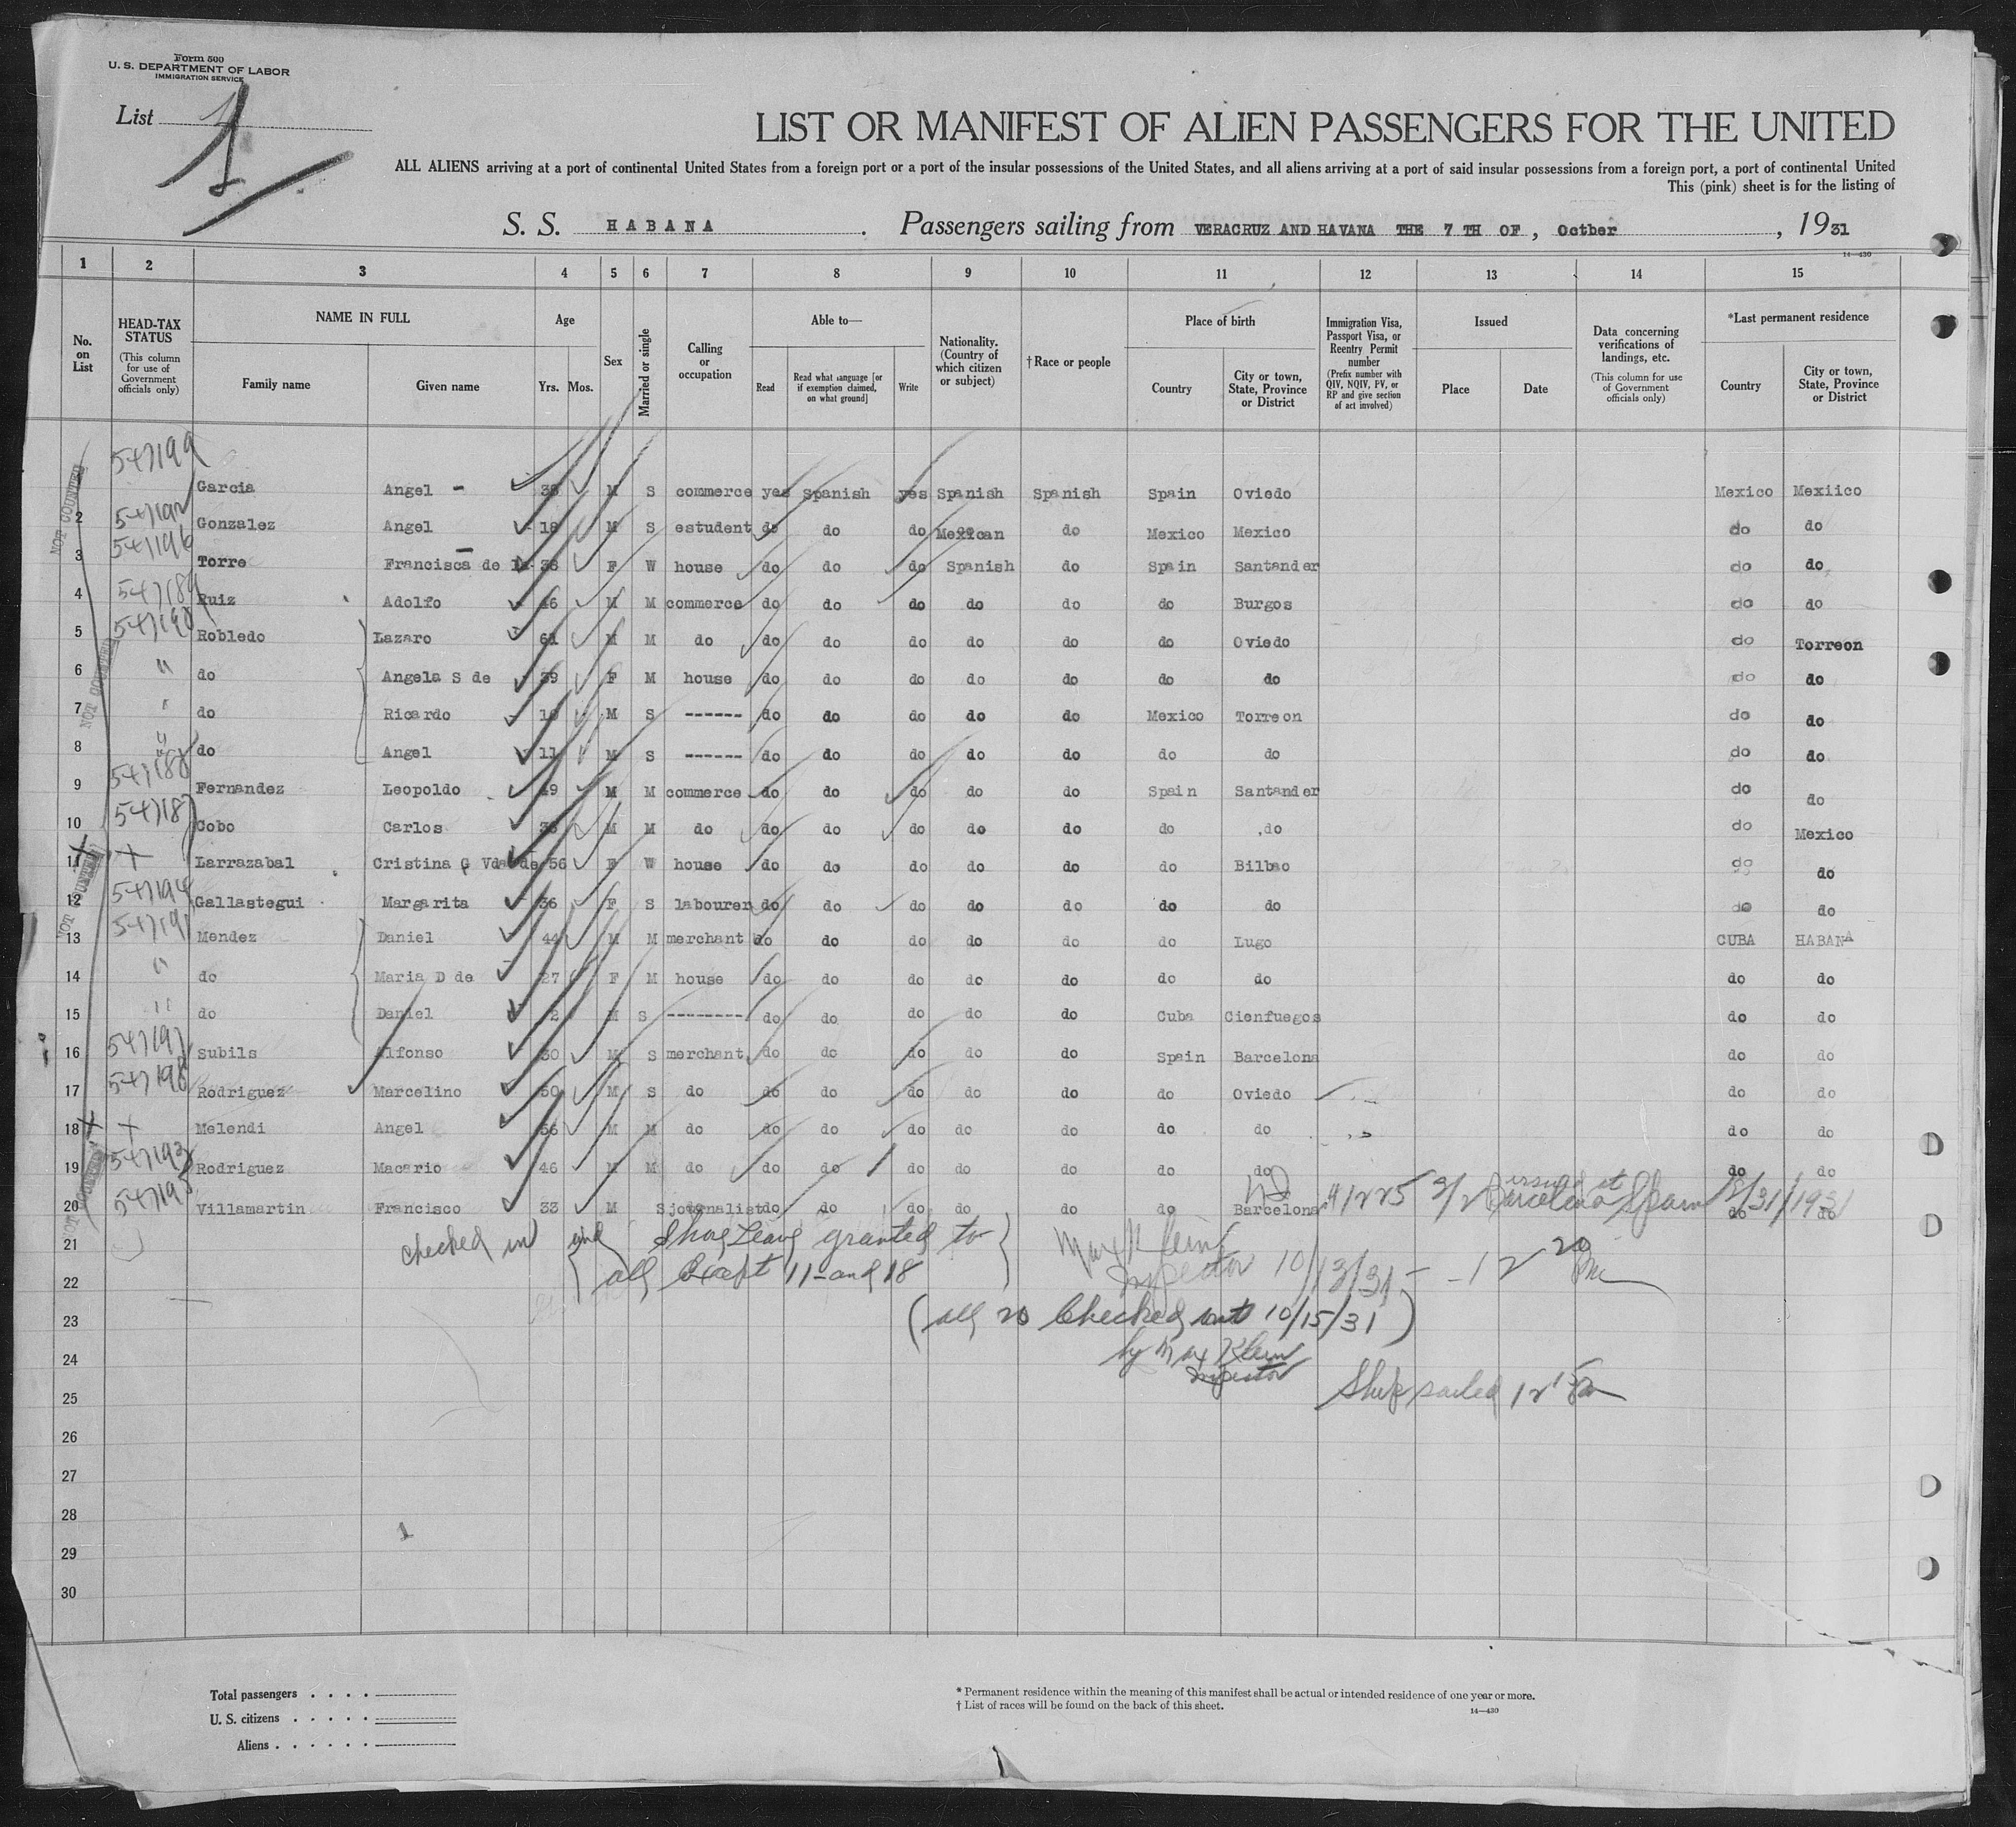 Form 500
U. S. DEPARTMENT OF LABOR
IMMIGRATION SERVICE
List 1
LIST OR MANIFEST OF ALIEN PASSENGERS FOR THE UNITED
ALL ALIENS arriving at a port of continental United States from a foreign port or a port of the insular possessions of the United States, and all aliens arriving at a port of said insular possessions from a foreign port, a port of continental United
This (pink) sheet is for the listing of
S. S. HABANA. Passengers sailing from VERACRUZ AND HAVANA THE 7 TH OF, Octber, 1931
14—430
1 2 3 4 5 6 7 8 9 10 11 12 13 14 15
No. on List
HEAD-TAX STATUS (This column for use of Government officials only)
NAME IN FULL Family name Given name
Age Yrs. Mos.
Sex
Married or single
Calling or occupation
Able to— Read Read what language [or if exemption claimed, on what ground] Write
Nationality. (Country of which citizen or subject)
†Race or people
Place of birth Country City or town, State, Province or District
Immigration Visa, Passport Visa, or Reentry Permit number (Prefix number with QIV, NQIV, PV, or RP and give section of act involved)
Issued Place Date
Data concerning verifications of landings, etc. (This column for use of Government officials only)
*Last permanent residence Country City or town, State, Province or District
547199 Garcia Angel - 38 M S commerce yes Spanish yes Spanish Spanish Spain Oviedo Mexico Mexiico
2 547192 Gonzalez Angel 18 M S estudent do do do Mexican do Mexico Mexico do do
3 547196 Torre Francisca de la 38 F W house do do do Spanish do Spain Santander do do
4 547189 Ruiz Adolfo 46 M M commerce do do do do do do Burgos do do
5 547190 Robledo Lazaro 61 M M do do do do do do do Oviedo do Torreon
6 " do Angela S de 39 F M house do do do do do do do do do
7 " do Ricardo M S ------ do do do do do Mexico Torreon do do
8 " do Angel 11 M S ------ do do do do do do do do do
9 547188 Fernandez Leopoldo 49 M M commerce do do do do do Spain Santander do do
10 547187 Cobo Carlos M M do do do do do do do do do Mexico
11 + Larrazabal Cristina G Vda de 56 F W house do do do do do do Bilbao do do
12 547194 Gallastegui Margarita 36 F S labourer do do do do do do do do do
13 547191 Mendez Daniel 44 M M merchant do do do do do do Lugo CUBA HABANA
14 " do Maria D de 27 F M house do do do do do do do do do
15 " do Daniel 2 M S -------- do do do do do Cuba Cienfuegos do do
16 547197 Subils Alfonso 30 M S merchant do do do do do Spain Barcelona do do
17 547198 Rodriguez Marcelino 50 M S do do do do do do do Oviedo do do
18 + Melendi Angel 56 M M do do do do do do do do do do
19 547193 Rodriguez Macario 46 M M do do do do do do do do do do
20 547195 Villamartin Francisco 33 M S jotonalist do do do do do do Barcelona do do
41225 3/2 issued at Barcelona Spain 8/31/1931
NOT COUNTED
NOT COUNTED
NOT COUNTED
NOT COUNTED
21 checked in and Shore Leave granted to Max Klein
22 all Except 11 - and 18 Inspector 10/13/31 - 12 20 PM
23 (all 20 Checked out 10/15/31)
24 by Max Klein
Inspector
25 Ship sailed
26
27
28
1
29
30
Total passengers . . . .
U. S. citizens . . . . .
Aliens . . . . . .
* Permanent residence within the meaning of this manifest shall be actual or intended residence of one year or more.
† List of races will be found on the back of this sheet.
14—430